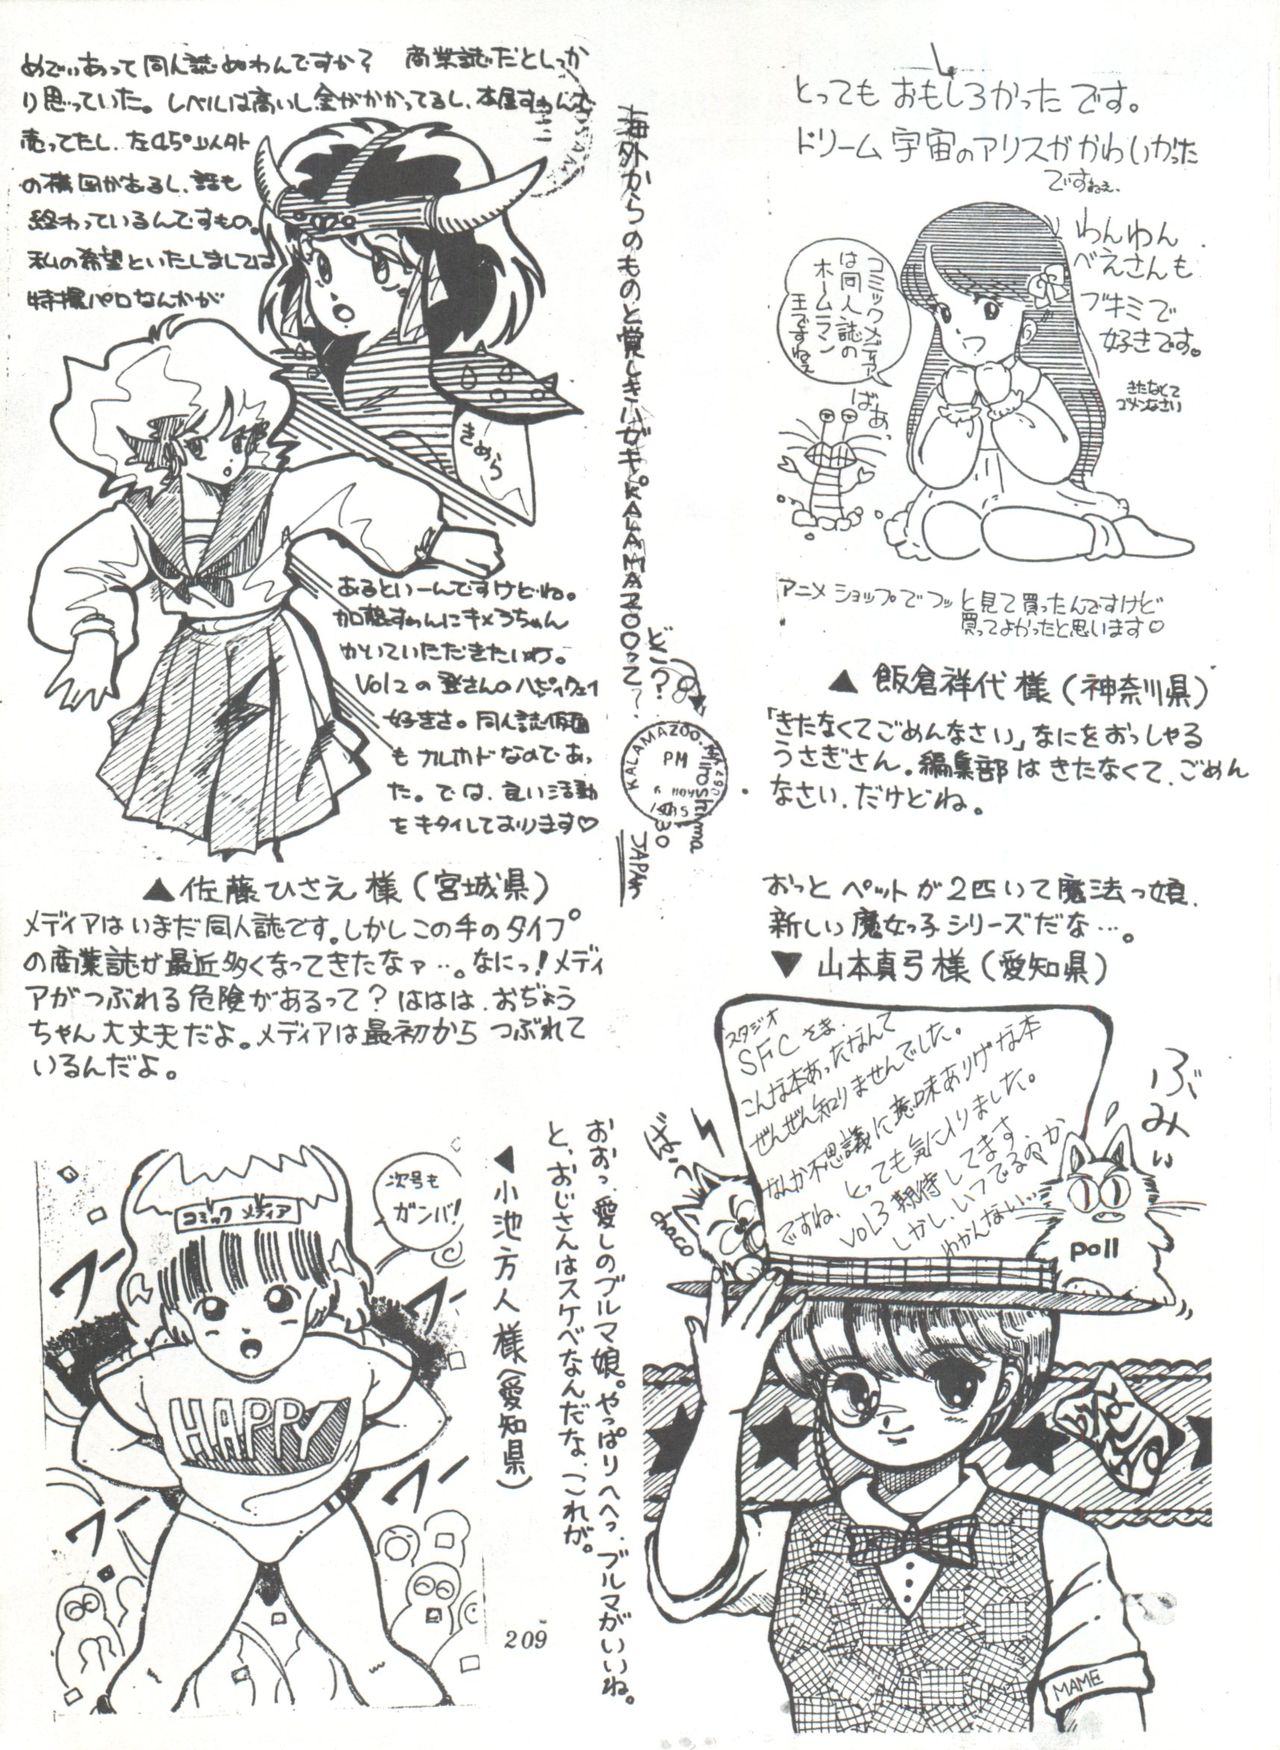 めでぃあって同人誌なわんですか？　商業誌だとしっか
り思っていた。レベルは高いし金がかかってるし、本屋すわんで
売ってたし、左45°以外
の構図があるし、話も
終わっているんですもの。
私の希望といたしましては
特撮パロなんかが
きめら
あるといーんですけどね。
加藤すわんにキメラちゃん
かいていただきたいわ。
Vol2の登さんのハッピィウェイ
好きさ。同人誌仮面
もナルホドなのであっ
た。では、良い活動
をキタイしております♡
▲佐藤ひさえ様（宮城県）
メディアはいまだ同人誌です。しかしこの手のタイプ
の商業誌が最近多くなってきたなァ…。なにっ！メディ
アがつぶれる危険があるって？ははは、おぢょう
ちゃん大丈夫だよ。メディアは最初からつぶれて
いるんだよ。
海外からのものと覚しきハガキ。KALAMAZOOって
どこ？
KALAMAZOO.
PM
Hiroshima
730
JAPAN
とってもおもしろかったです。
ドリーム宇宙のアリスがかわいかった
ですねぇ、
わんわん
べえさんも
ブキミで
好きです。
きたなくて
ゴメンなさい
コミックメディア
は同人誌の
ホームラン
王ですねぇ
ばぁ、
アニメショップでフッと見て買ったんですけど
買ってよかったと思います♡
▲飯倉祥代様（神奈川県）
「きたなくてごめんなさい」なにをおっしゃる
うさぎさん。編集部はきたなくて、ごめん
なさい、だけどね。
おっとペットが2匹いて魔法っ娘、
新しい魔女っ子シリーズだな…。
▼山本真弓様（愛知県）
スタジオ
SFCさま、
こんな本あったなんて
ぜんぜん知りませんでした。
なんか不思議に意味ありげな本
ですね、とっても気に入りました。
Vol.3期待してます
しかし、いつでるのか
わかんない…
choco
ぶみぃ
poll
MAME
おおっ、愛しのブルマ娘。やっぱりへへっ、ブルマがいいね。
と、おじさんはスケベなんだな、これが。
▲小池方人様（愛知県）
コミックメディア
次号も
ガンバ！
HAPPY
ワー
ワー
ワー
ワー
209